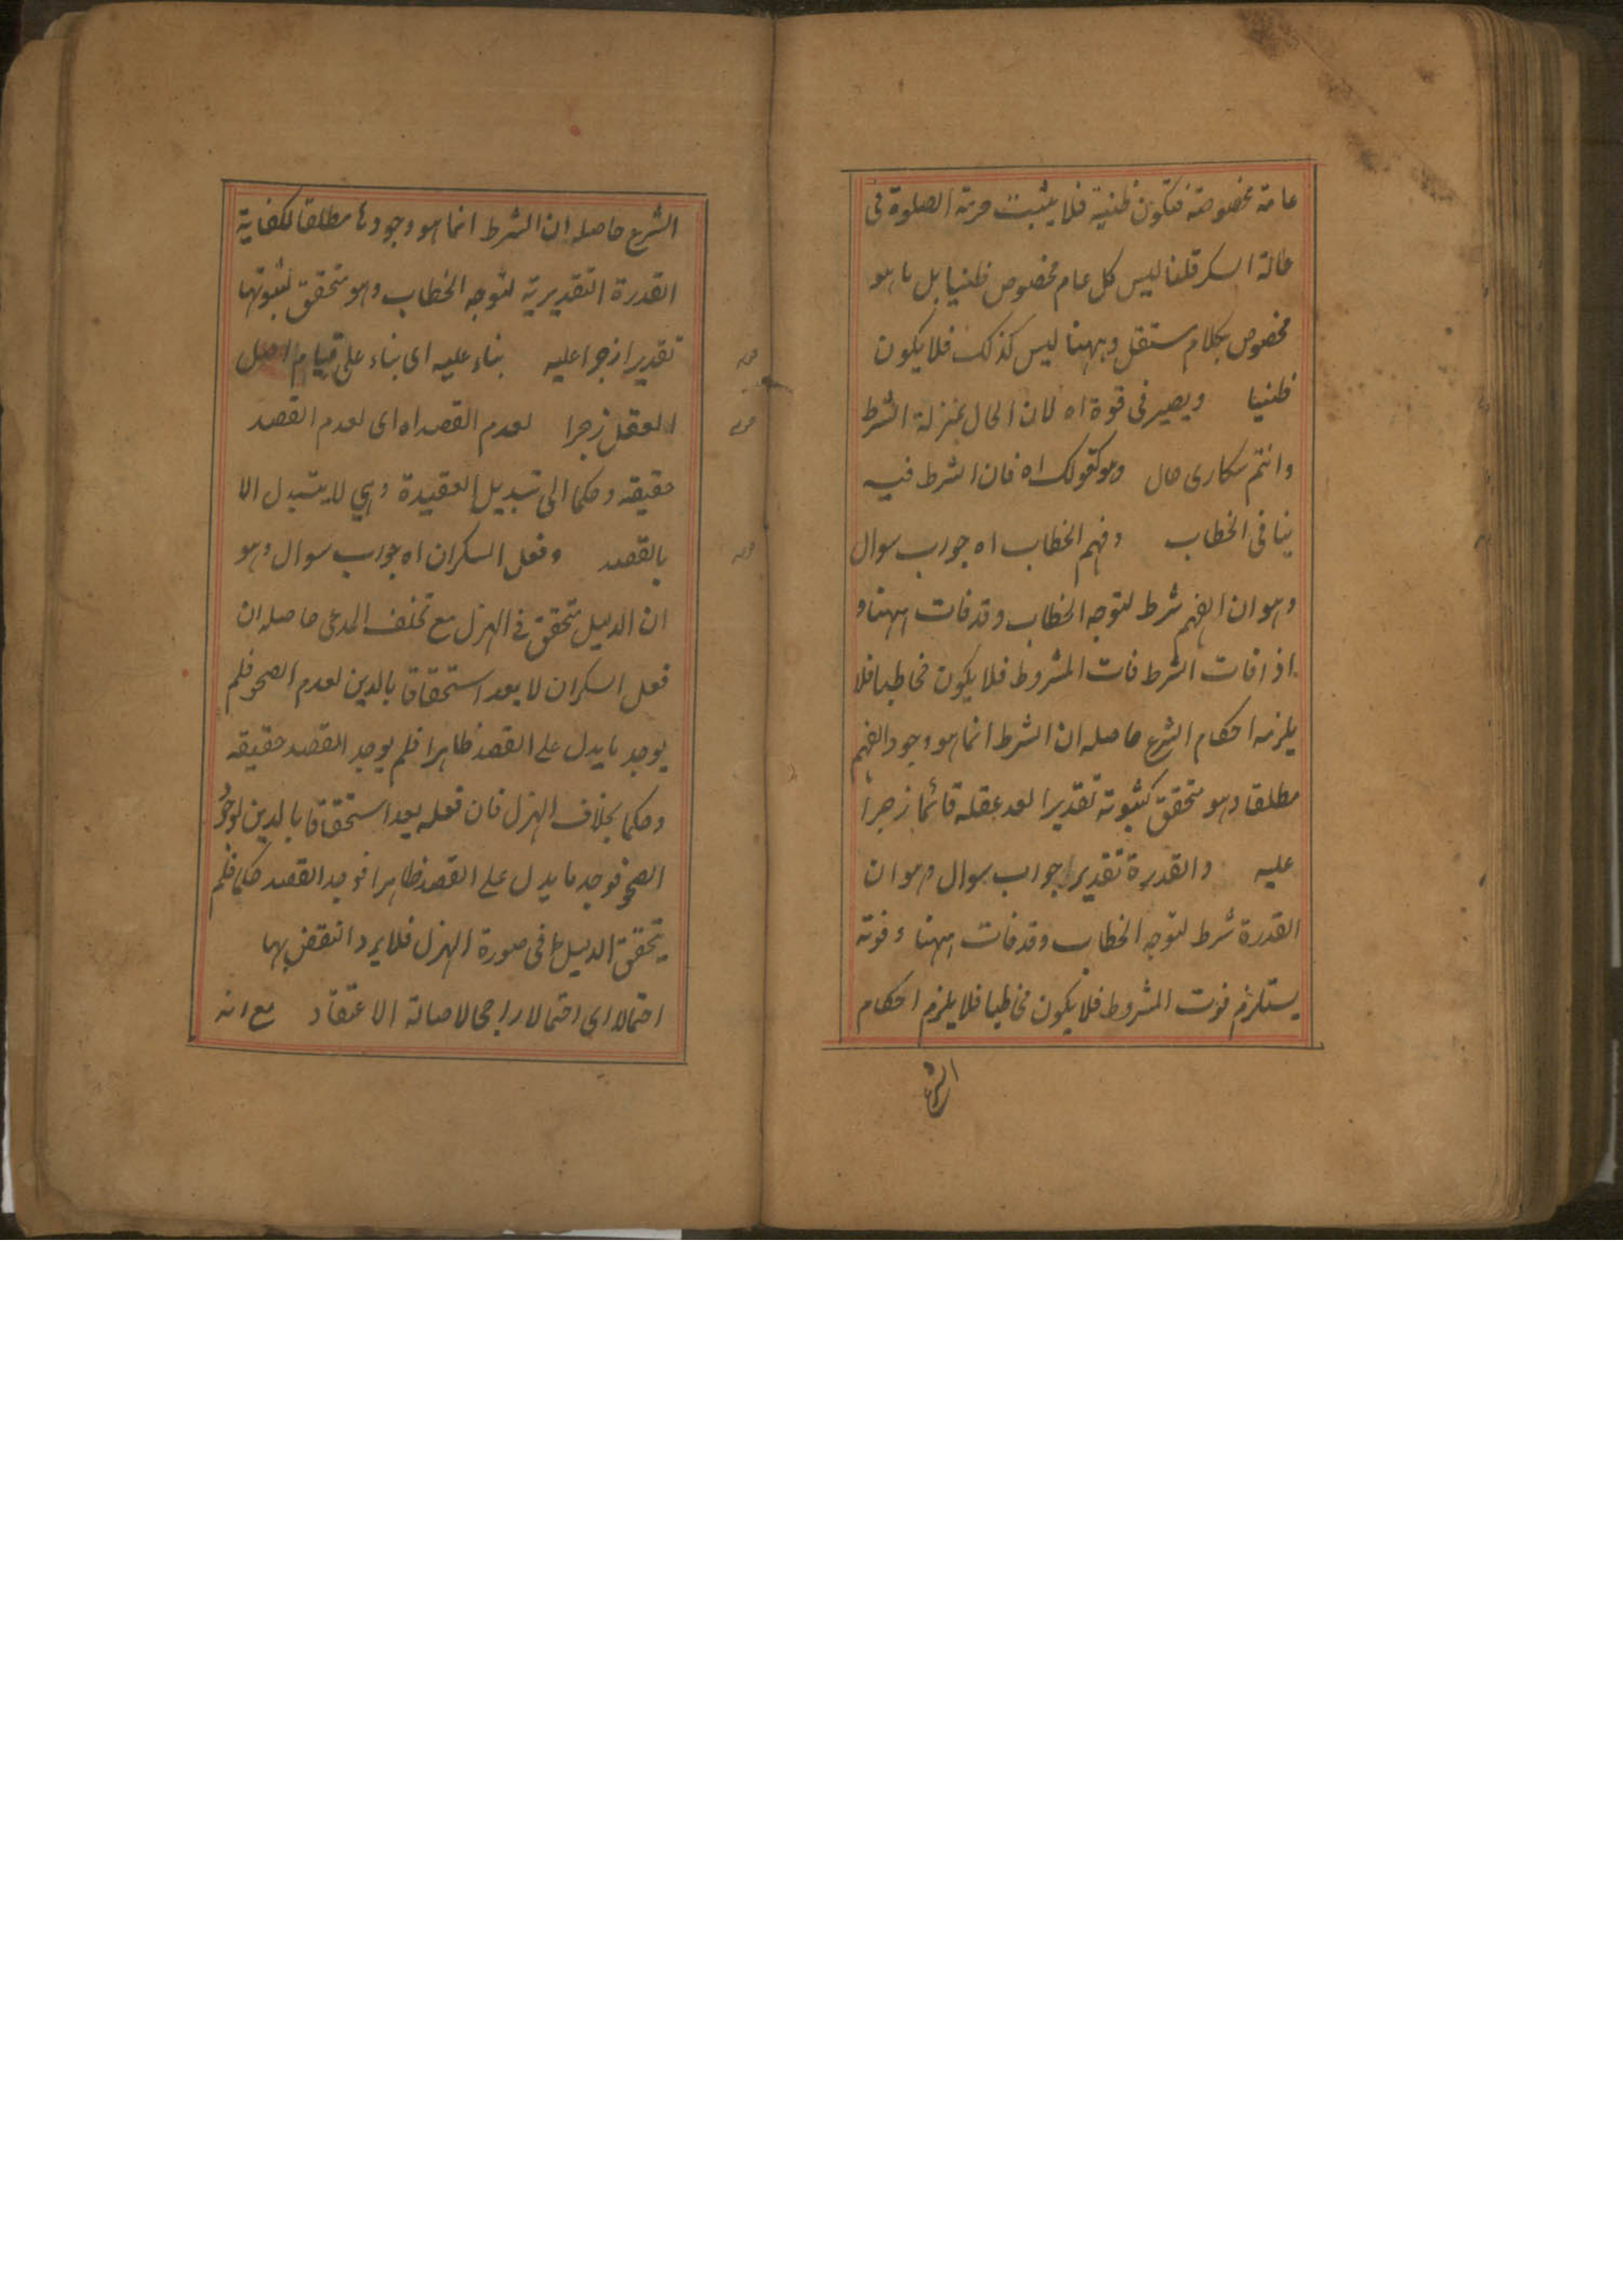 عامة مخصوصة فتكون ظنية فلا يثبت حرمة الصلوة فى
حالة السكر قلنا ليس كل عام مخصوص ظنيا بل ما هو
مخصوص بكلام مستقل وههنا ليس كذلك فلا يكون
ظنيا ويصير فى قوة اه لان الحال بمنزلة الشرط
وانتم سكارى حال وهو كقولك اه فان الشرط فيه
ينافى الخطاب وفهم الخطاب اه جواب سوال
وهو ان الفهم شرط لتوجه الخطاب وقد فات ههنا و
اذا فات الشرط فات المشروط فلا يكون مخاطبا فلا
يلزمه احكام الشرع حاصله ان الشرط انما هو وجود الفهم
مطلقا وهو متحقق كثبوته تقديرا لعد عقله قائما زجرا
عليه والقدرة تقديرا جواب سوال وهو ان
القدرة شرط لتوجه الخطاب وقد فات ههنا وفوته
يستلزم فوت المشروط فلا يكون مخاطبا فلا يلزم احكام
الشرع
الشرع حاصله ان الشرط انما هو وجودها مطلقا لكفاية
القدرة التقديرية لتوجه الخطاب وهو متحقق لثبوتها
تقديرا زجرا عليه بناء عليه اى بناء على قيام اصل
العقل زجرا لعدم القصد اه اى لعدم القصد
حقيقة وحكما الى تبديل العقيدة وهي لا يتبدل الا
بالقصد وفعل السكران اه جواب سوال وهو
ان الدليل متحقق فى الهزل مع تخلف المدعى حاصله ان
فعل السكران لا يعد استحقاقا بالدين لعدم الصحو فلم
يوجد ما يدل على القصد ظاهرا فلم يوجد القصد حقيقة
وحكما بخلاف الهزل فان فعله يعد استحقاقا بالدين لوجود
الصحو فوجد ما يدل على القصد ظاهرا فوجد القصد حكما فلم
يتحقق الدليل فى صورة الهزل فلا يرد النقض بها
احتمالا اى احتمالا راجحا لاصالة الاعتقاد مع انه